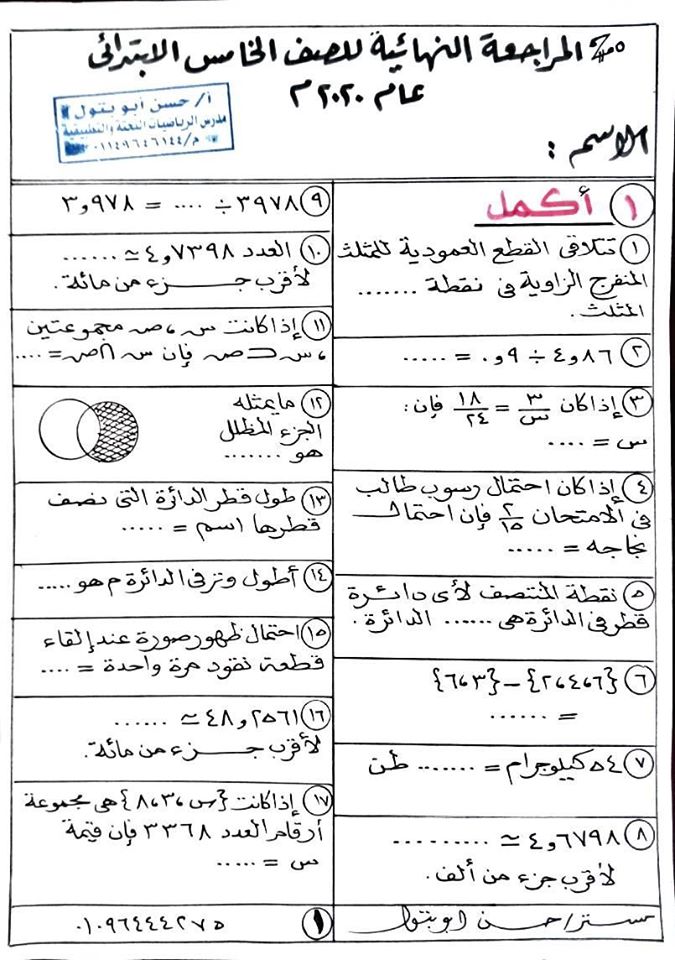 المراجعة النهائية للصف الخامس الابتدائى
عام ٢٠٢٠ م
أ/ حسن أبو بتول
مدرس الرياضيات البحتة والتطبيقية
م/ ٠١١٤٩٦٤٦١٤٤
الاسم :
١ أكمل
١ تتلاقى القطع العمودية للمثلث
المنفرج الزاوية فى نقطة .......
المثلث .
٢ ٤,٨٦ ÷ ٠,٩ = .....
٣ إذا كان ٣/س = ١٨/٢٤ فإن :
س = ....
٤ إذا كان احتمال رسوب طالب
فى الامتحان ٢/١٥ فإن احتمال
نجاحه = .....
٥ نقطة المنتصف لأى دائرة
قطر فى الدائرة هى ...... الدائرة .
٦ {٢،٤،٦} – {٦،٣}
= ......
٧ ٥٤ كيلوجرام = ....... طن
٨ ٤,٦٧٩٨ ≃ ..........
لأقرب جزء من ألف .
٩ ٣٩٧٨ ÷ .... = ٣,٩٧٨
١٠ العدد ٤,٧٣٩٨ ≃ ......
لأقرب جزء من مائة .
١١ إذا كانت س ، ص مجموعتين
، س ⊂ ص فإن س ∩ ص = ....
١٢ ما يمثله
الجزء المظلل
هو .......
١٣ طول قطر الدائرة التى نصف
قطرها ٤ سم = .....
١٤ أطول وتر فى الدائرة م هو .....
١٥ احتمال ظهور صورة عند إلقاء
قطعة نقود مرة واحدة = ....
١٦ ٤٨,٢٥٦١ ≃ ......
لأقرب جزء من مائة .
١٧ إذا كانت {س ،٣،٨} هى مجموعة
أرقام العدد ٣٣٦٨ فإن قيمة
س = .....
مستر / حسن أبو بتول
١
٠١٠٩٦٤٤٤٢٧٥